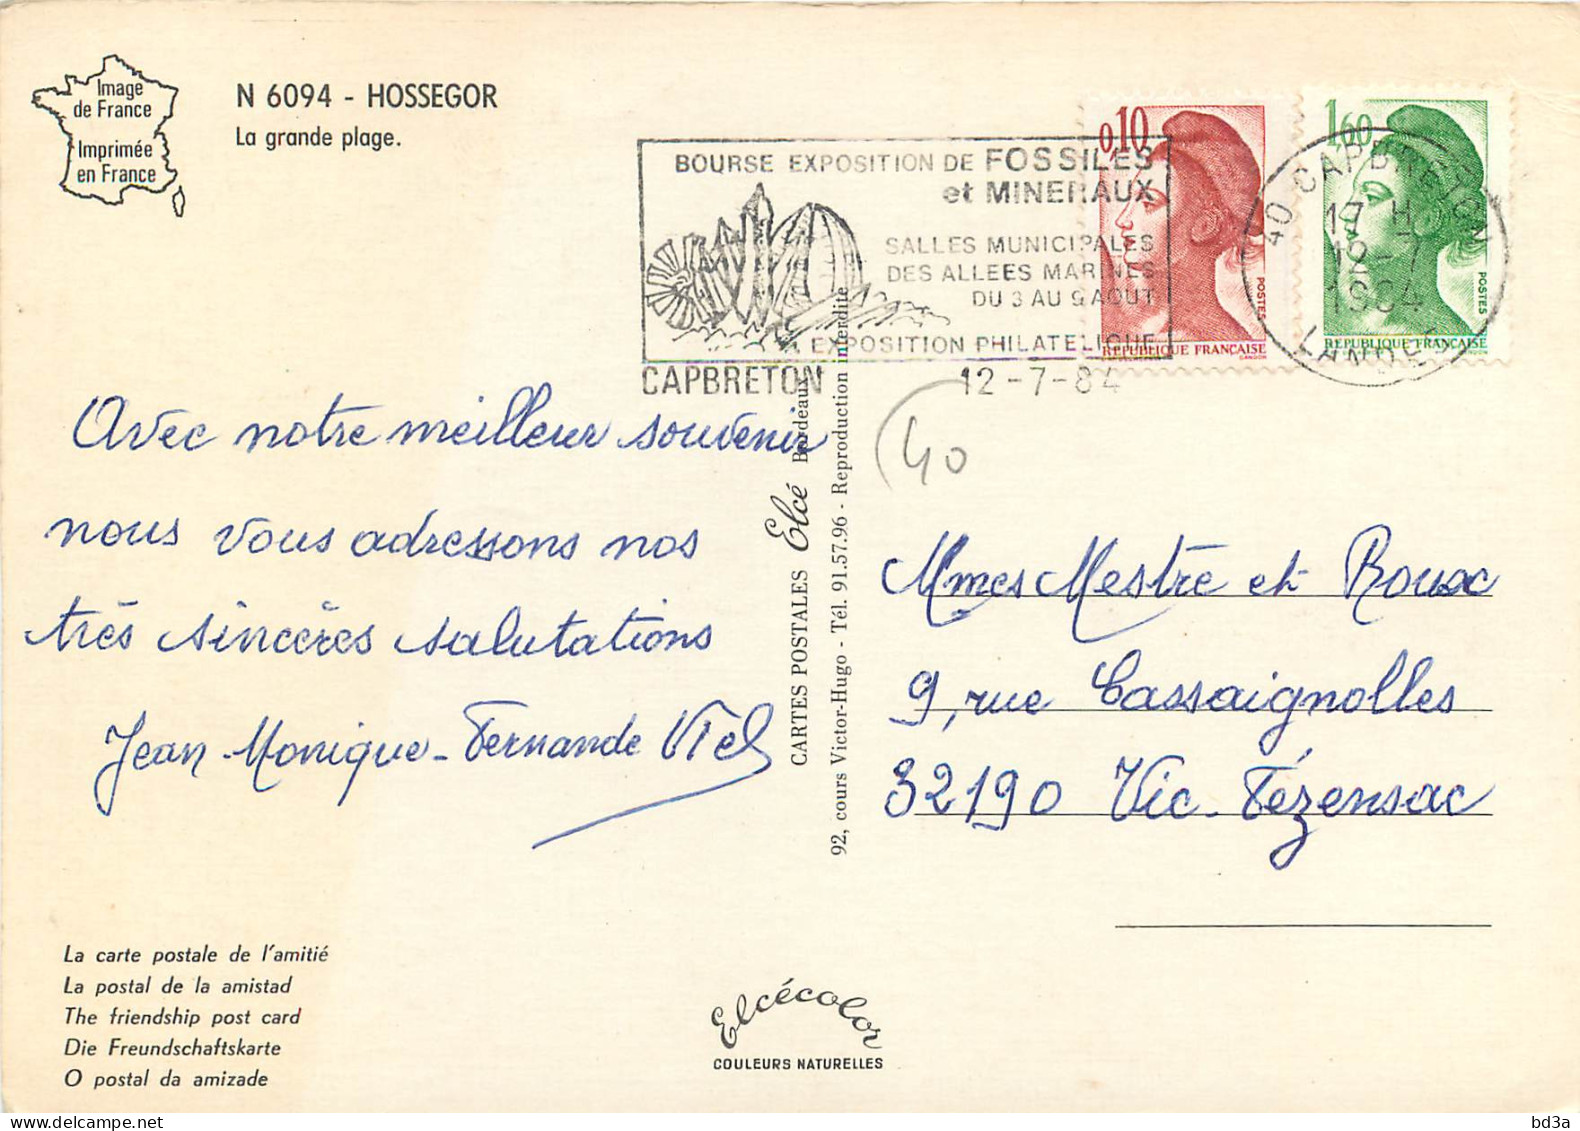 Image
de France
Imprimée
en France
N 6094 - HOSSEGOR
La grande plage.
BOURSE EXPOSITION DE FOSSILES
et MINERAUX
SALLES MUNICIPALES
DES ALLEES MARINES
DU 3 AU 9 AOUT
EXPOSITION PHILATELIQUE
CAPBRETON 12-7-84
0,10
POSTES
REPUBLIQUE FRANÇAISE
GANDON
1,60
POSTES
REPUBLIQUE FRANÇAISE
GANDON
40 CAPBRETON
17 H
12-7
1984
LANDES
40
Avec notre meilleur souvenir
nous vous adressons nos
très sincères salutations
Jean-Monique-Fernande Viel
CARTES POSTALES Elcé Bordeaux
92, cours Victor-Hugo - Tél. 91.57.96 - Reproduction interdite
Mmes Mestre et Rouac
9, rue Cassaignolles
32190 Vic-Fézensac
La carte postale de l'amitié
La postal de la amistad
The friendship post card
Die Freundschaftskarte
O postal da amizade
Elcécolor
COULEURS NATURELLES
bd3a